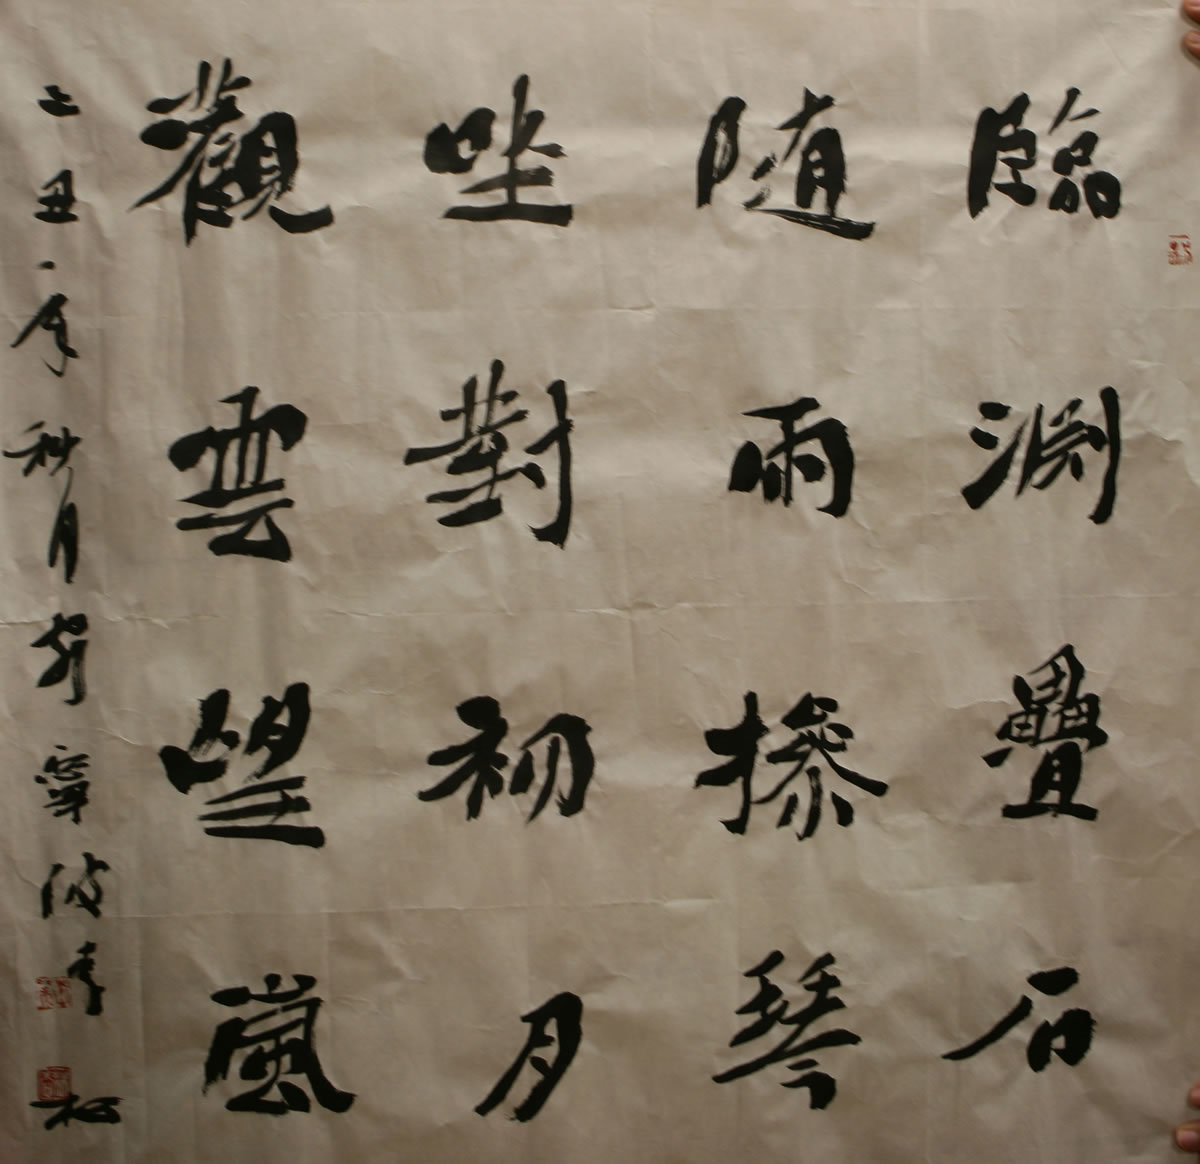 臨淵疊石
随雨操琴
坐對初月
觀雲望嵐
丑年秋月於寧波李松